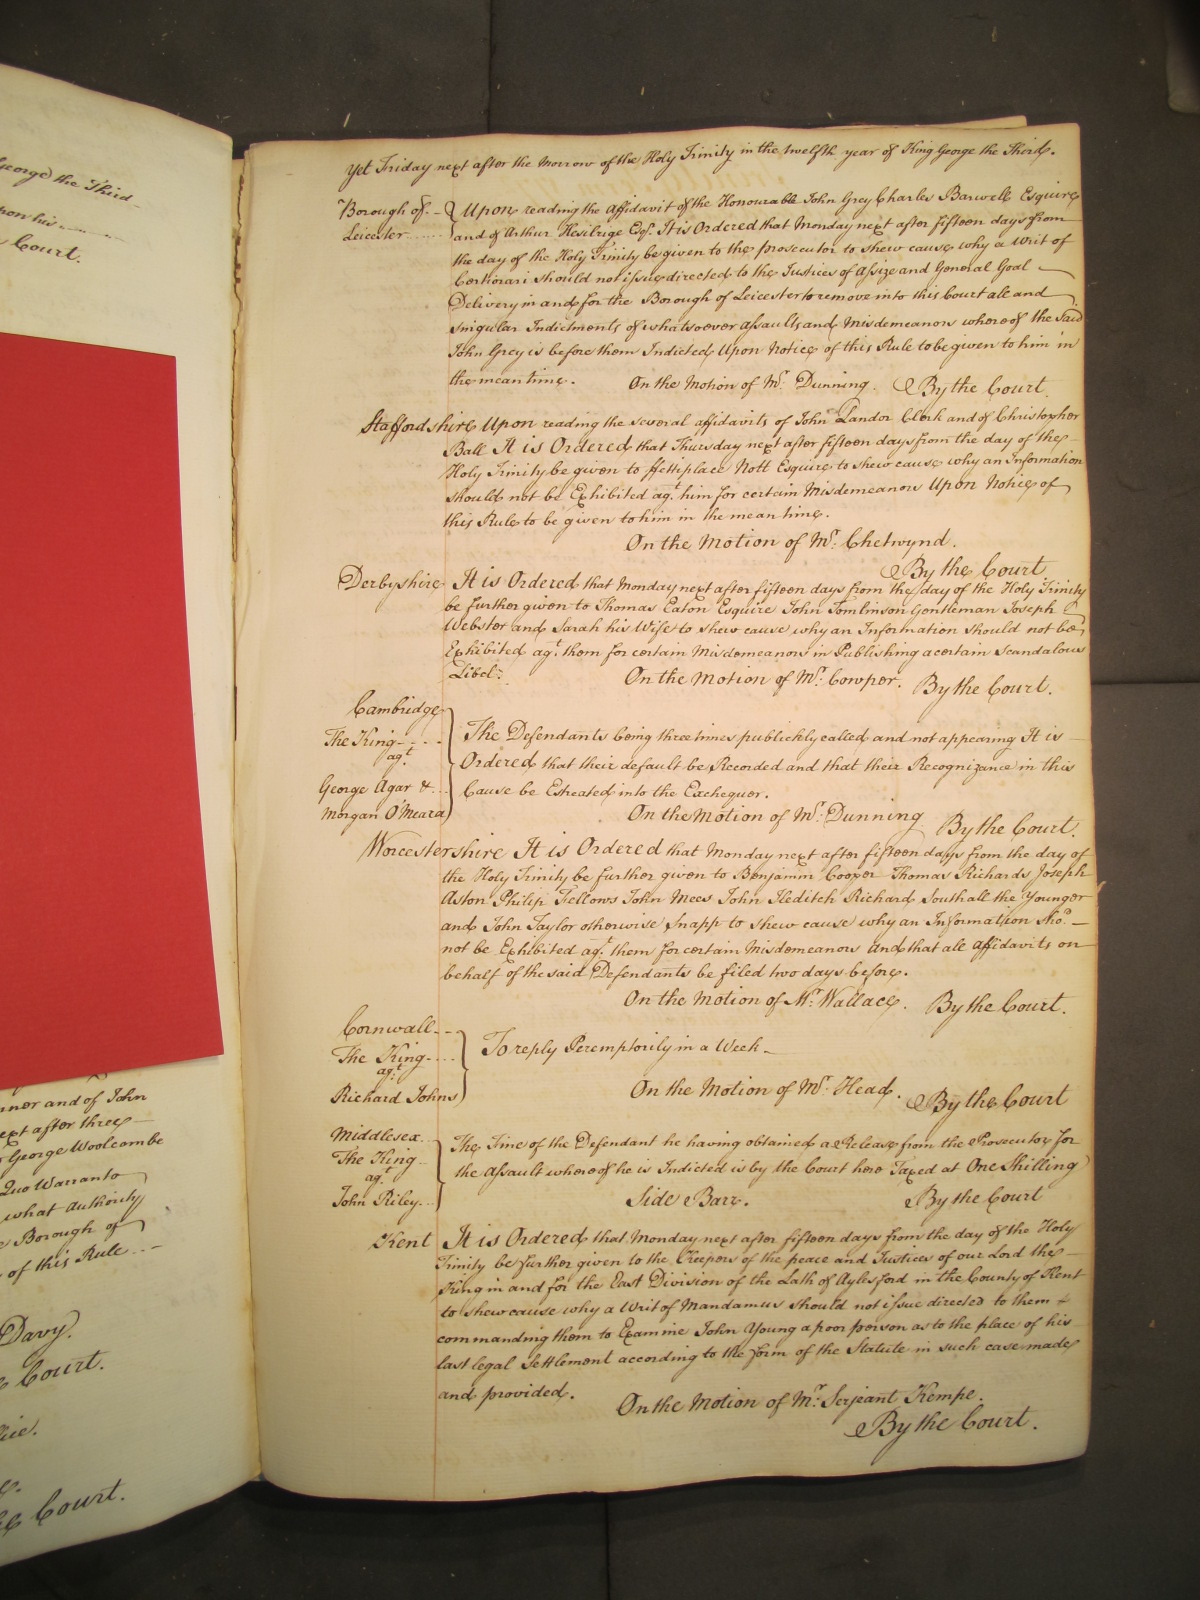 George the Third
upon his
Court.
nner and of John
next after three
George Woolcombe
Quo Warranto
what Authority
Borough of
of this Rule
Davy.
Court.
Court.
Yet Friday next after the Morrow of the Holy Trinity in the twelfth year of King George the Third.
Borough of Leicester Upon reading the Affidavit of the Honourable John Grey Charles Barwell Esquire
and of Arthur Hesilrige Esqr. It is Ordered that Monday next after fifteen days from
the day of the Holy Trinity be given to the prosecutor to shew cause why a Writ of
Certiorari should not issue directed to the Justices of Assize and General Goal
Delivery in and for the Borough of Leicester to remove into this Court all and
singular Indictments of whatsoever assaults and Misdemeanors whereof the said
John Grey is before them Indicted Upon Notice of this Rule to be given to him in
the mean time. On the Motion of Mr. Dunning. By the Court
Staffordshire Upon reading the several affidavits of John Landor Clerk and of Christopher
Ball It is Ordered that Thursday next after fifteen days from the day of the
Holy Trinity be given to ffethiplace Nott Esquire to shew cause why an Information
should not be Exhibited agt. him for certain Misdemeanors Upon Notice of
this Rule to be given to him in the mean time.
On the Motion of Mr. Chetwynd.
By the Court
Derbyshire It is Ordered that Monday next after fifteen days from the day of the Holy Trinity
be further given to Thomas Eaton Esquire John Tomlinson Gentleman Joseph
Webster and Sarah his Wife to shew cause why an Information should not be
Exhibited agt. them for certain Misdemeanors in Publishing a certain Scandalous
Libel. On the Motion of Mr. Cowper. By the Court.
Cambridge
The King
agt.
George Agar &
Morgan O'Meara
The Defendants being three times publickly called and not appearing It is
Ordered that their default be Recorded and that their Recognizance in this
Cause be Estreated into the Exchequer.
On the Motion of Mr. Dunning By the Court.
Worcestershire It is Ordered that Monday next after fifteen days from the day of
the Holy Trinity be further given to Benjamin Cooper Thomas Richards Joseph
Aston Philip Fellows John Mees John Ileditch Richard Southall the Younger
and John Taylor otherwise Snapp to shew cause why an Information shod.
not be Exhibited agt. them for certain Misdemeanors And that all affidavits on
behalf of the said Defendants be filed two days before.
On the Motion of Mr. Wallace. By the Court.
Cornwall
The King
agt.
Richard Johns
To reply Peremptorily in a Week
On the Motion of Mr. Head. By the Court
Middlesex
The King
agt.
John Riley
The Fine of the Defendant he having obtained a Release from the Prosecutor for
the Assault whereof he is Indicted is by the Court here Taxed at One Shilling
Side Barr. By the Court
Kent It is Ordered that Monday next after fifteen days from the day of the Holy
Trinity be further given to the Keepers of the peace and Justices of our Lord the
King in and for the East Division of the Lath of Aylesford in the County of Kent
to shew cause why a Writ of Mandamus should not issue directed to them
commanding them to Examine John Young a poor person as to the place of his
last legal Settlement according to the form of the Statute in such case made
and provided. On the Motion of Mr. Serjeant Kempe.
By the Court.